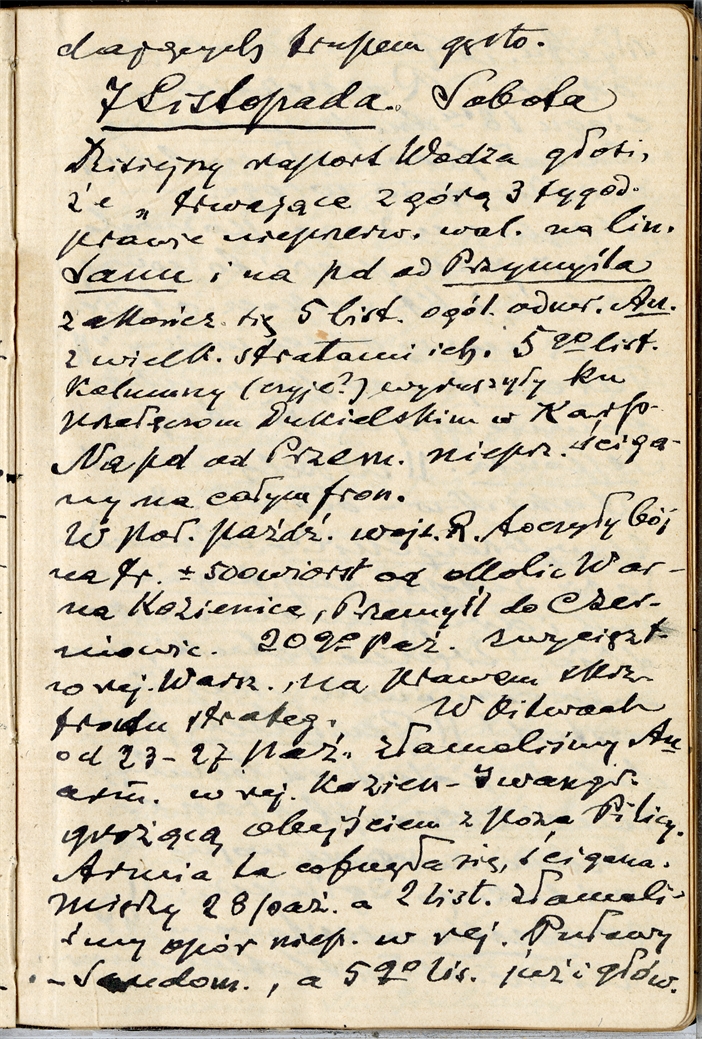 dających trupem gęsto.
7 Listopada. Sobota
Dzisiejszy raport Wodza głosi,
że „trwające z górą 3 tygod.
prawie nieprzerw. wal. na lin.
Sanu i na pd od Przymyśla
zakończ. się 5 list. ogól. odwr. Au.
z wielk. stratami ich. 5go list.
Kolumny (czyje?) wyruszyły ku
przełęczom Dukielskim w Karp.
Na pd od Przem. niepr. ściga-
ny na całym fron.
W poł. paźdź. wojs. R. toczyły bój
na fr. ± 500 wiorst od okolic War-
na Kozienice, Przemyśl do Czer-
niowic. 20go Paź. zwycięzt.
w rej. Warz., na prawem skrz.
frontu strateg. W bitwach
od 23-27 paź. złamaliśmy Au
arm. w rej. Kozien-Iwangr.
grożącą obejściem z poza Pilicy.
Armia ta cofnęła się, ścigana.
Między 28 paź. a 2 list. złamali-
śmy opór niep. w rej. Puławy
- Sandom., a 5go lis. już i głów.